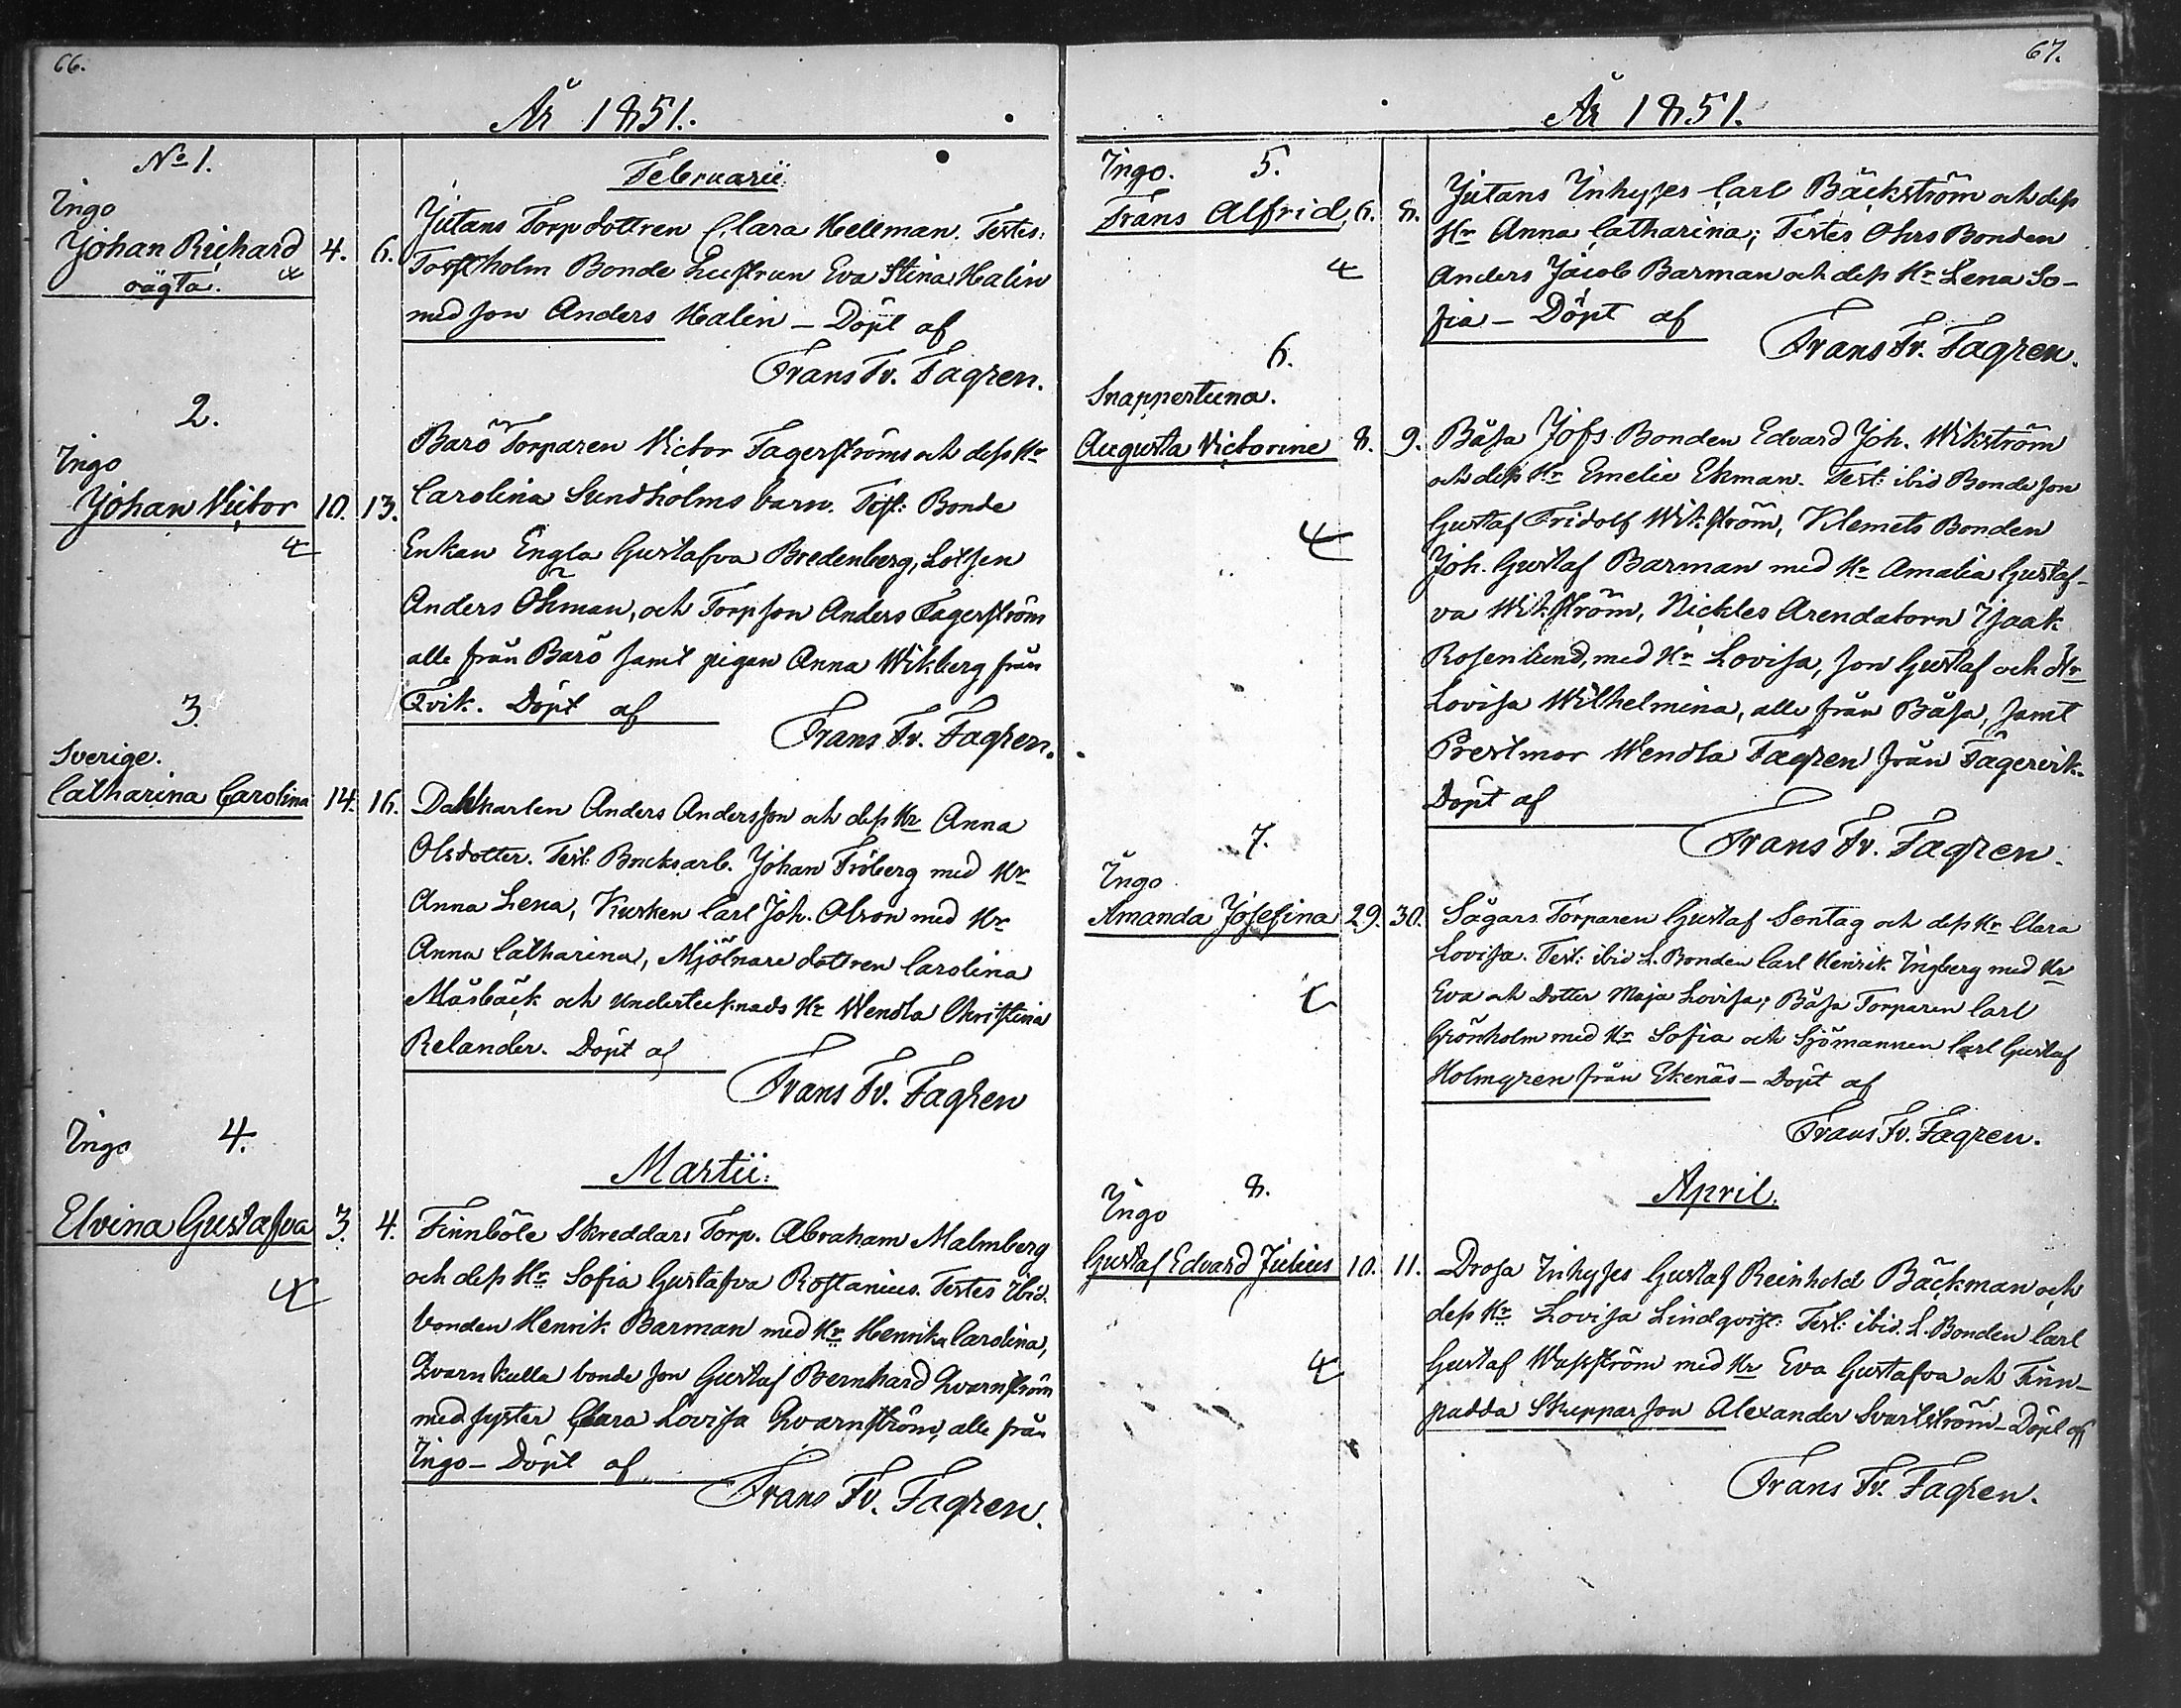 66.
År 1851.
No 1.
Februarii:
Ingo
Johan Richard 4. 6.
oägta.
Jutans Torpdottren Clara Hellman. Testes:
Torstholm Bonde hustrun Eva Stina Halin
med son Anders Halin – Döpt af
Frans Fr. Fagren.
2.
Ingo
Johan Victor 10. 13.
Barö Torparen Victor Fagerströms och dess Hr
Carolina Sundholms barn. Test: Bonde
Enkan Engla Gustafva Bredenberg, Lotsen
Anders Öhman, och Torpson Anders Fagerström
alle från Barö samt pigan Anna Wikberg från
Qvik. Döpt af
Frans Fr. Fagren.
3.
Sverige.
Catharina Carolina 14. 16.
Dahlkarlen Anders Andersson och dess Hr Anna
Olsdotter. Test: Bruksarb. Johan Fröberg med Hr
Anna Lena, Kusken Carl Joh. Olson med Hr
Anna Catharina, Mjölnare dottren Carolina
Måsbäck och undertecknads Hr Wendla Christina
Relander. Döpt af
Frans Fr. Fagren
Martii:
Ingo 4.
Elvina Gustafva 3. 4.
Finnböle Skreddars Torp. Abraham Malmberg
och dess Hr Sofia Gustafva Rostanius. Testes Ibid.
bonden Henrik Barman med Hr Henrika Carolina,
Qvarnkulla bonde son Gustaf Bernhard Qvarnström
med syster Clara Lovisa Qvarnström, alle från
Ingo – Döpt af
Frans Fr. Fagren.
67.
År 1851.
Ingo. 5.
Frans Alfrid 6. 8.
Jutans Inhyses Carl Bäckström och dess
Hr Anna Catharina; Testes Ohrs Bonden
Anders Jacob Barman och dess Hr Lena So-
fia – Döpt af
Frans Fr. Fagren.
6.
Snappertuna.
Augusta Victorine 8. 9.
Båsa Jofs Bonden Edvard Joh. Wikström
och dess Hr Emelie Ekman. Test: ibid Bonde son
Gustaf Fridolf Wikström, Klemets Bonden
Joh. Gustaf Barman med Hr Amalia Gustaf-
va Wikström, Nickles Arendatorn Isaak
Rosenlund, med Hr Lovisa, son Gustaf och Hr
Lovisa Wilhelmina, alle från Båsa, samt
Prestmor Wendla Fagren från Fagervik.
Döpt af
Frans Fr. Fagren.
7.
Ingo
Amanda Josefina 29. 30.
Sågars Torparen Gustaf Sontag och dess Hr Clara
Lovisa. Test: ibid L. Bonden Carl Henrik Ingberg med Hr
Eva och Dotter Maja Lovisa; Båsa Torparen Carl
Grönholm med Hr Sofia och Sjömannen Carl Gustaf
Holmgren från Ekenäs – Döpt af
Frans Fr. Fagren.
April.
8.
Ingo
Gustaf Edvard Julius 10. 11.
Drosa Inhyses Gustaf Reinhold Bäckman och
dess Hr Lovisa Lindqvist. Test: ibid. L. Bonden Carl
Gustaf Wasström med Hr Eva Gustafva och Finn-
padda Skeppar son Alexander Svartström – Döpt af
Frans Fr. Fagren.